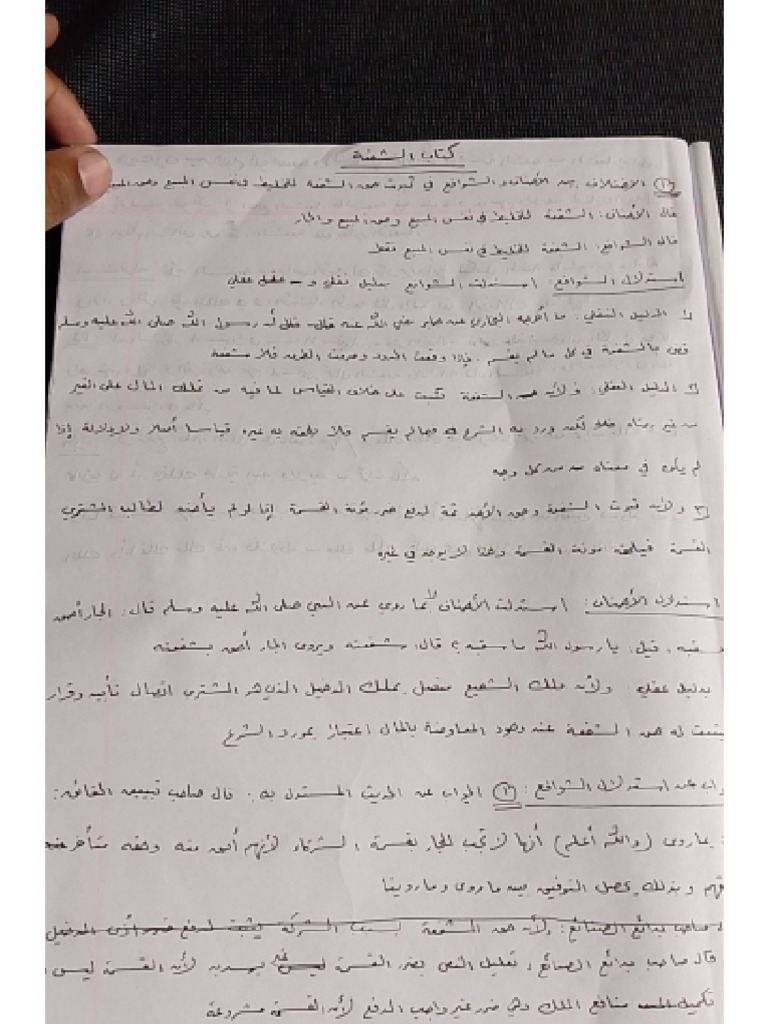 كتاب الشفعة
① الاختلاف بين الأحناف و الشوافع في ثبوت حق الشفعة للخليط في نفس المبيع وحق المبيع
قال الأحناف: الشفعة للخليط في نفس المبيع وحق المبيع والجار
قال الشوافع: الشفعة للخليط في نفس المبيع فقط
استدلال الشوافع: استدلت الشوافع بدليل نقلي و - عقلي
١) الدليل النقلي: ما أخرجه البخاري عن جابر رضي الله عنه قال - قال رسول الله صلى الله عليه وسلم
بالشفعة في كل ما لم يقسم، فإذا وقعت الحدود وصرفت الطرق فلا شفعة
٢) الدليل العقلي: ولأن حق الشفعة ثبت على خلاف القياس لما فيه من تملك المال على الغير
من غير رضاه، لكن ورد به الشرع فيما لم يقسم فلا يلحق به غيره قياسا أصلا ولا دلالة إذا
لم يكن في معناه من كل وجه
٣) ولأن ثبوت الشفعة وحق الأخذ ثمة لدفع ضرر مؤنة القسمة إذا لو لم يأخذه لطالب المشتري
القسمة فيلحقه مؤنة القسمة وهذا لا يوجد في غيره
استدلال الأحناف: استدلت الأحناف بما روي عن النبي صلى الله عليه وسلم قال: الجار أحق
بسقبه، قيل: يا رسول الله ما سقبه؟ قال: شفعته ويروى الجار أحق بشفعته
بدليل عقلي: ولأن ملك الشفيع متصل بملك الدخيل الذي هو المشتري اتصال تأبيد وقرار
يثبت له حق الشفعة عند وجود المعاوضة بالمال اعتبارا بمورد الشرع
جواب عن استدلال الشوافع: ② الجواب عن الحديث المستدل به: قال صاحب تبيين الحقائق:
بما روى (والله أعلم) أنها لا تجب للجار بقسمة الشركاء لأنهم أحق منه وحقه متأخر عن
حقهم و بذلك يحصل التوفيق بين ما روى وما روينا
صاحب بدائع الصنائع: ولأن حق الشفعة بسبب الشركة يثبت لدفع ضرر أذى الدخيل
قال صاحب بدائع الصنائع: تعليل النص بضرر القسمة غير سديد لأن القسمة ليس
تكميل منافع الملك وهي ضرر غير واجب الدفع لأن القسمة مشروعة